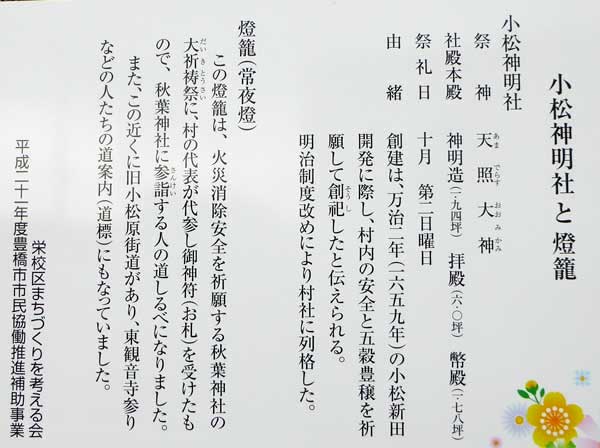 小松神明社と燈籠
小松神明社
祭神 天照大神
あま でらす おお み かみ
社殿本殿 神明造(一・九四坪) 拝殿(六・〇坪) 幣殿(一・七八坪)
祭礼日 十月 第二日曜日
由緒 創建は、万治二年(一六五九年)の小松新田
開発に際し、村内の安全と五穀豊穣を祈
願して創祀したと伝えられる。
そうし
明治制度改めにより村社に列格した。
燈籠(常夜燈)
この燈籠は、火災消除安全を祈願する秋葉神社の
大祈祷祭に、村の代表が代参し御神符(お札)を受けたも
だいきとうさい
ので、秋葉神社に参詣する人の道しるべになりました。
さんけい
また、この近くに旧小松原街道があり、東観音寺参り
などの人たちの道案内(道標)にもなっていました。
栄校区まちづくりを考える会
平成二十一年度豊橋市市民協働推進補助事業